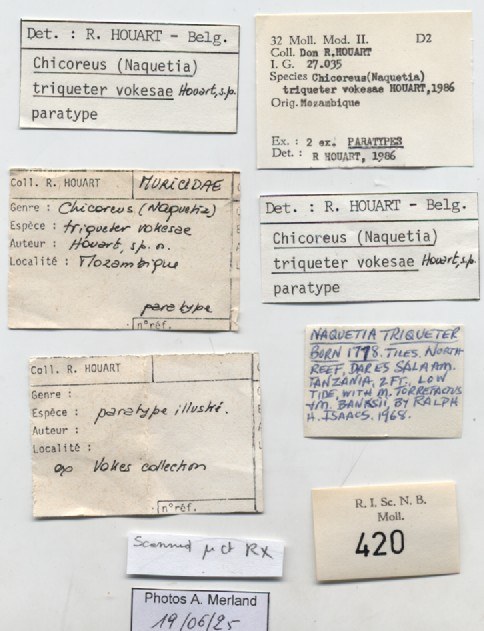 Det. : R. HOUART - Belg.
Chicoreus (Naquetia)
triqueter vokesae Houart, s.p.
paratype
32 Moll. Mod. II. D2
Coll. Don R.HOUART
I. G. 27.035
Species Chicoreus(Naquetia)
triqueter vokesae HOUART,1986
Orig.Mozambique
Ex.: 2 ex. PARATYPES
Det.: R HOUART, 1986
Coll. R. HOUART MURICIDAE
Genre : Chicoreus (Naquetia)
Espèce : triqueter vokesae
Auteur : Houart, sp. n.
Localité : Mozambique
paratype
n°réf.
Det. : R. HOUART - Belg.
Chicoreus (Naquetia)
triqueter vokesae Houart, s.p.
paratype
NAQUETIA TRIQUETER
BORN 1778. TILES. NORTH
REEF, DAR ES SALAAM.
TANZANIA, 2FT. LOW
TIDE, WITH M. TORREFACTUS
+M. BANKSII. BY RALPH
H. ISAACS. 1968.
Coll. R. HOUART
Genre :
Espèce : paratype illustré.
Auteur :
Localité :
Vokes collection
n°réf.
R. I. Sc. N. B.
Moll.
420
Scanned µct RX
Photos A. Merland
19/06/25